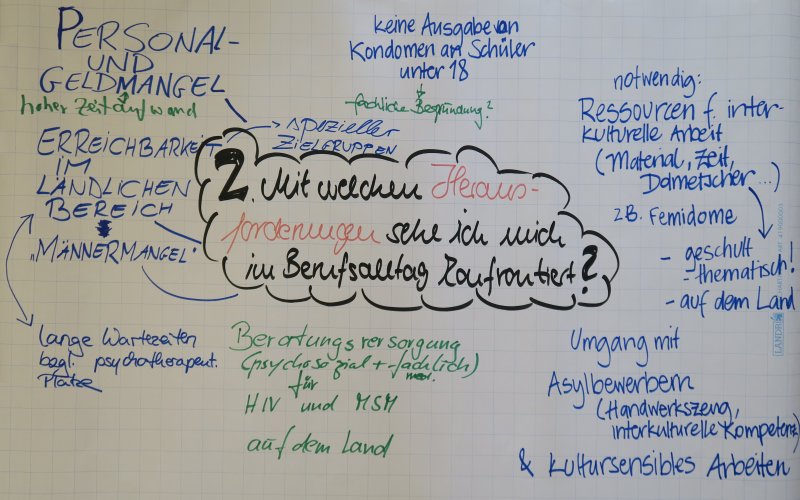 PERSONAL-
UND
GELDMANGEL
hoher Zeitaufwand
ERREICHBARKEIT
IM
LÄNDLICHEN
BEREICH
"MÄNNERMANGEL"
spezieller
ZIELGRUPPEN
keine Ausgabe von
Kondomen an Schüler
unter 18
fachliche Begründung?
2. Mit welchen Heraus-
forderungen sehe ich mich
im Berufsalltag konfrontiert?
notwendig:
Ressourcen f. inter-
kulturelle Arbeit
(Material, Zeit,
Dometscher...)
z.B. Femidome
- geschult
- thematisch!
- auf dem Land
LANDRÉ
lange Wartezeiten
bzgl. psychotherapeut.
Plätze
Beratungsversorgung
(psychosozial + fachlich)
für
HIV und MSM
auf dem Land
Umgang mit
Asylbewerbern
(Handwerkszeug,
interkulturelle Kompetenz)
& kultursensibles Arbeiten